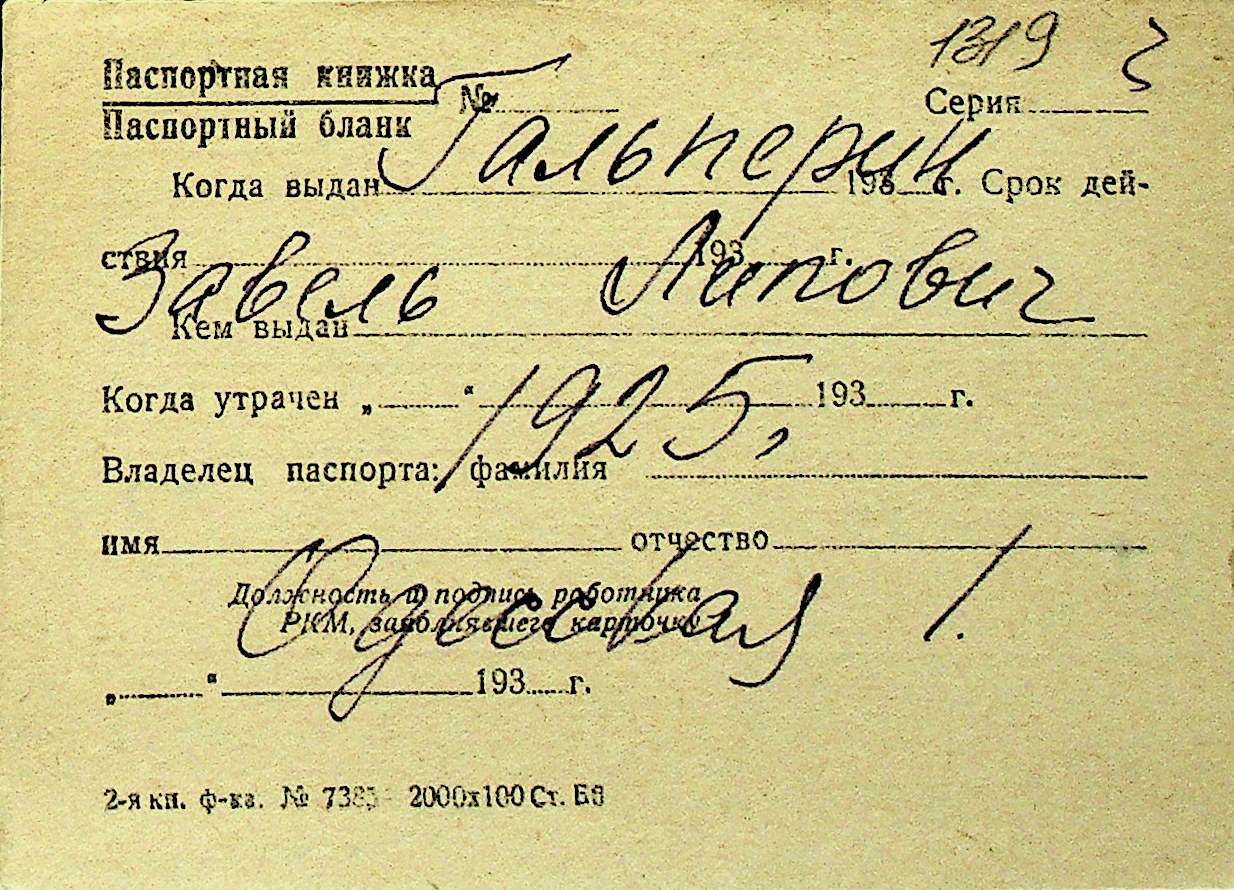 1319 3
Паспортная книжка
Паспортный бланк
№ Серия
Гальперин
Когда выдан 193 г. Срок дей-
ствия 193 г.
Завель Липович
Кем выдан
Когда утрачен „ “ 193 г.
1925,
Владелец паспорта: фамилия
имя отчество
Должность и подпись работника
РКМ, заполнявшего карточку
Одесская 1.
„ “ 193 г.
2-я кн. ф-ка. № 7385 2000х100 Ст. Б8